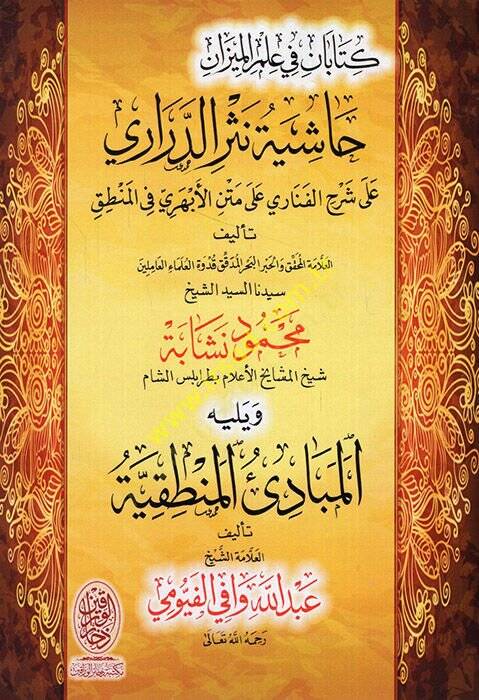 كِتَابَانِ فِي عِلْمِ المِيزَانِ
حَاشِيَة نَثْرِ الدَّرَارِي
عَلَى شَرْحِ الفَنَارِي عَلَى مَتْنِ الأَبْهَرِيّ فِي المَنْطِقِ
تأليف
العَلَّامَة المُحَقِّق وَالحَبْر البَحْر المُدَقِّق قُدْوَة العُلَمَاء العَامِلِين
سيدنا السيد الشيخ
محمود نشابة
شيخ المشايخ الأعلام بطرابلس الشام
ويليه
المَبَادِئُ المَنْطِقِيَّة
تأليف
العَلَّامَة الشَّيْخ
عبد الله وافي الفيومي
رَحِمَهُ اللهُ تَعَالَى